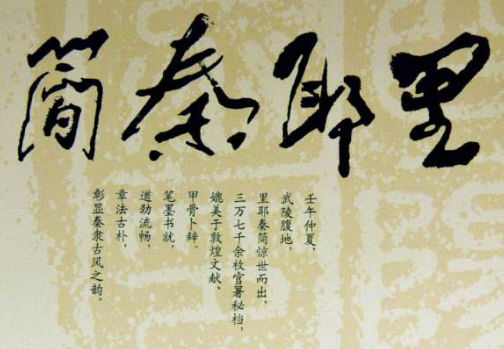 里耶秦简
壬午仲夏,
武陵腹地,
里耶秦简惊世而出。
三万七千余枚官署秘档,
媲美于敦煌文献、
甲骨卜辞。
笔墨书就,
遒劲流畅、
章法古朴,
彰显秦隶古风之韵。